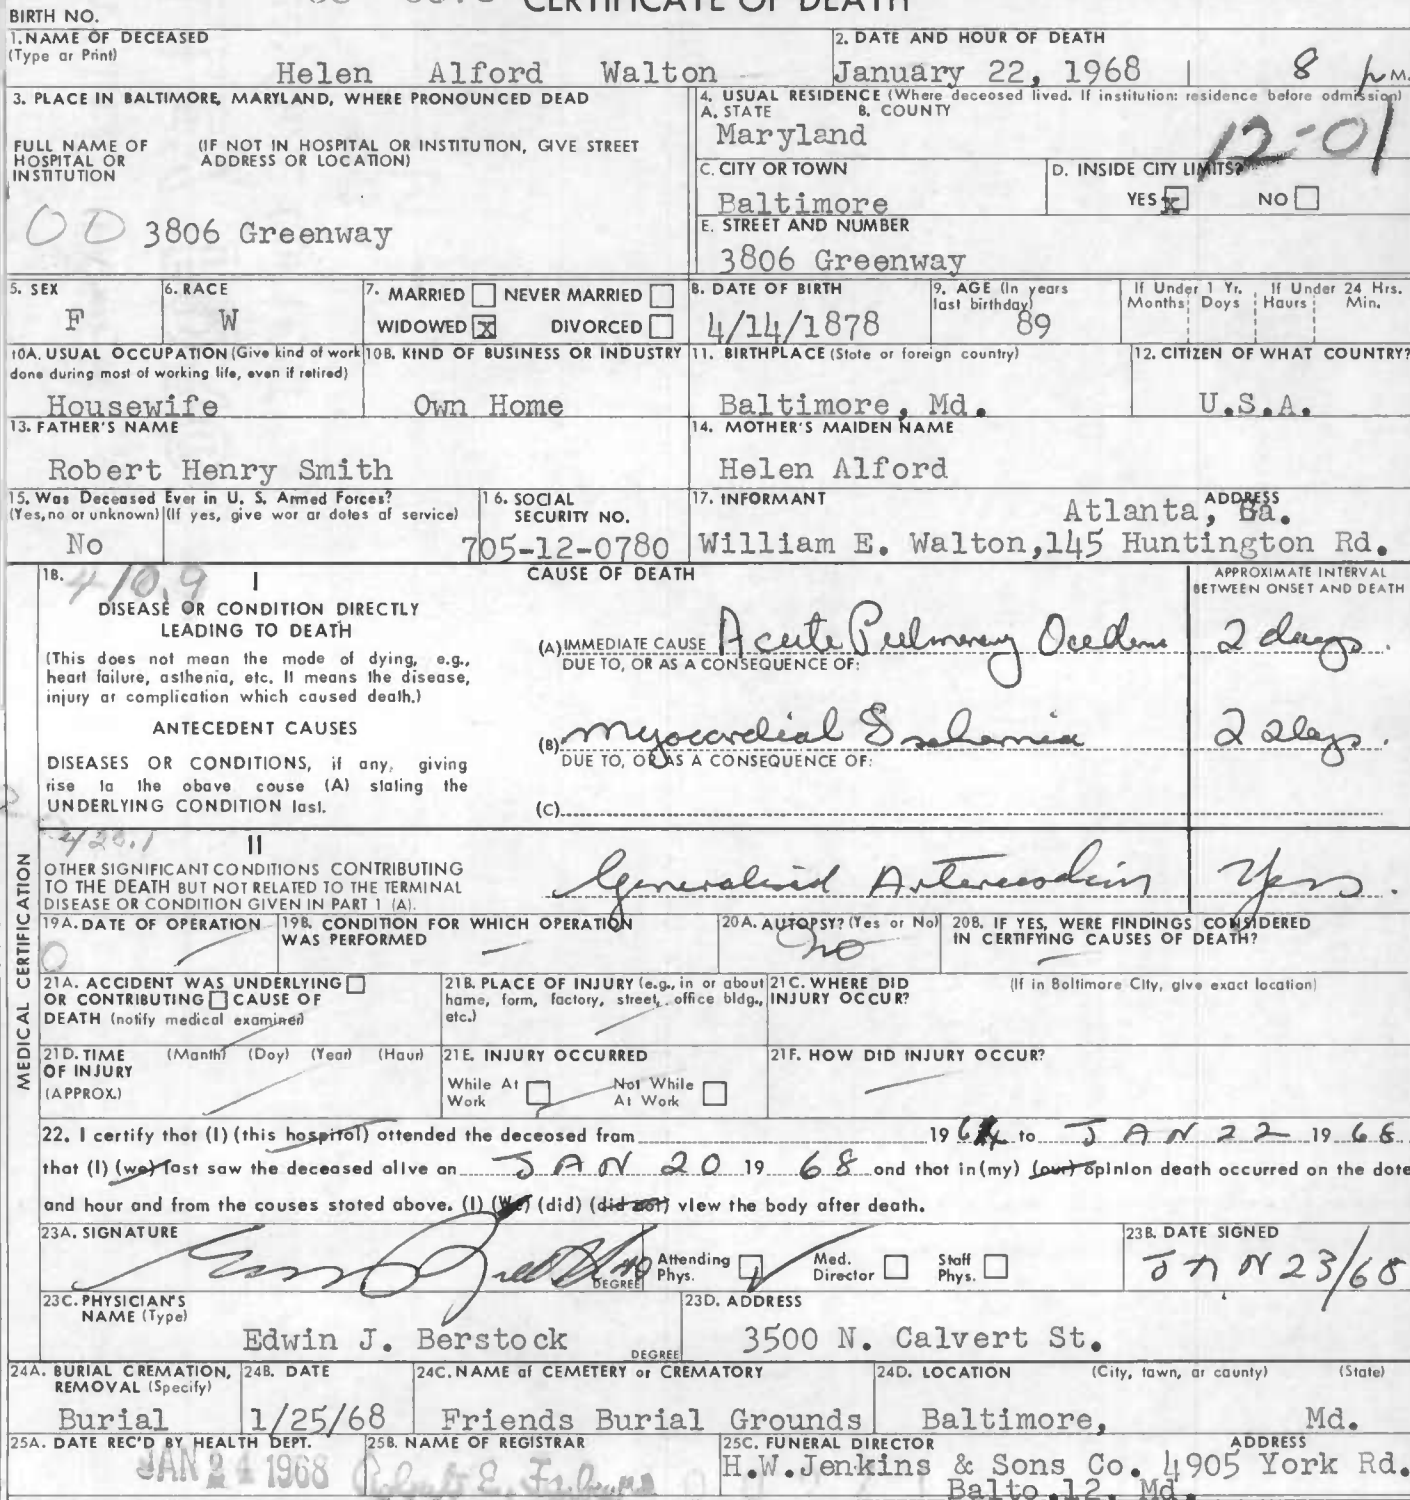 CERTIFICATE OF DEATH
BIRTH NO.
1. NAME OF DECEASED
(Type or Print)
Helen Alford Walton
2. DATE AND HOUR OF DEATH
January 22, 1968 8 p M.
3. PLACE IN BALTIMORE, MARYLAND, WHERE PRONOUNCED DEAD
FULL NAME OF HOSPITAL OR INSTITUTION
(IF NOT IN HOSPITAL OR INSTITUTION, GIVE STREET ADDRESS OR LOCATION)
00 3806 Greenway
4. USUAL RESIDENCE (Where deceased lived. If institution: residence before admission)
A. STATE B. COUNTY
Maryland
12-01
C. CITY OR TOWN
Baltimore
D. INSIDE CITY LIMITS?
YES x NO
E. STREET AND NUMBER
3806 Greenway
5. SEX
F
6. RACE
W
7. MARRIED NEVER MARRIED
WIDOWED x DIVORCED
8. DATE OF BIRTH
4/14/1878
9. AGE (In years last birthday)
89
If Under 1 Yr. Months Days
If Under 24 Hrs. Hours Min.
10A. USUAL OCCUPATION (Give kind of work done during most of working life, even if retired)
Housewife
10B. KIND OF BUSINESS OR INDUSTRY
Own Home
11. BIRTHPLACE (State or foreign country)
Baltimore, Md.
12. CITIZEN OF WHAT COUNTRY?
U.S.A.
13. FATHER'S NAME
Robert Henry Smith
14. MOTHER'S MAIDEN NAME
Helen Alford
15. Was Deceased Ever in U. S. Armed Forces?
(Yes, no or unknown) (If yes, give war or dates of service)
No
16. SOCIAL SECURITY NO.
705-12-0780
17. INFORMANT ADDRESS
Atlanta, Ga.
William E. Walton, 145 Huntington Rd.
MEDICAL CERTIFICATION
18. 410.9
I
CAUSE OF DEATH
APPROXIMATE INTERVAL BETWEEN ONSET AND DEATH
DISEASE OR CONDITION DIRECTLY LEADING TO DEATH
(This does not mean the mode of dying, e.g., heart failure, asthenia, etc. It means the disease, injury or complication which caused death.)
(A) IMMEDIATE CAUSE Acute Pulmonary Oedema 2 days.
DUE TO, OR AS A CONSEQUENCE OF:
ANTECEDENT CAUSES
DISEASES OR CONDITIONS, if any, giving rise to the above cause (A) stating the UNDERLYING CONDITION last.
(B) Myocardial Ischemia 2 days.
DUE TO, OR AS A CONSEQUENCE OF:
(C)
420.1
II
OTHER SIGNIFICANT CONDITIONS CONTRIBUTING TO THE DEATH BUT NOT RELATED TO THE TERMINAL DISEASE OR CONDITION GIVEN IN PART 1 (A).
Generalised Yrs.
19A. DATE OF OPERATION
0
19B. CONDITION FOR WHICH OPERATION WAS PERFORMED
20A. AUTOPSY? (Yes or No)
no
20B. IF YES, WERE FINDINGS CONSIDERED IN CERTIFYING CAUSES OF DEATH?
21A. ACCIDENT WAS UNDERLYING OR CONTRIBUTING CAUSE OF DEATH (notify medical examiner)
21B. PLACE OF INJURY (e.g., in or about home, farm, factory, street, office bldg., etc.)
21C. WHERE DID INJURY OCCUR?
(If in Baltimore City, give exact location)
21D. TIME OF INJURY (APPROX.)
(Month) (Day) (Year) (Hour)
21E. INJURY OCCURRED
While At Work Not While At Work
21F. HOW DID INJURY OCCUR?
22. I certify that (I) (this hospital) attended the deceased from 1964 to JAN 22 1968
that (I) (we) last saw the deceased alive on JAN 20 1968 and that in (my) (our) opinion death occurred on the date
and hour and from the causes stated above. (I) (We) (did) (did not) view the body after death.
23A. SIGNATURE
DEGREE
Attending Phys. Med. Director Staff Phys.
23B. DATE SIGNED
JAN 23/68
23C. PHYSICIAN'S NAME (Type)
Edwin J. Berstock
DEGREE
23D. ADDRESS
3500 N. Calvert St.
24A. BURIAL CREMATION, REMOVAL (Specify)
Burial
24B. DATE
1/25/68
24C. NAME of CEMETERY or CREMATORY
Friends Burial Grounds
24D. LOCATION (City, town, or county) (State)
Baltimore, Md.
25A. DATE REC'D BY HEALTH DEPT.
JAN 24 1968
25B. NAME OF REGISTRAR
25C. FUNERAL DIRECTOR ADDRESS
H.W.Jenkins & Sons Co. 4905 York Rd.
Balto.12, Md.